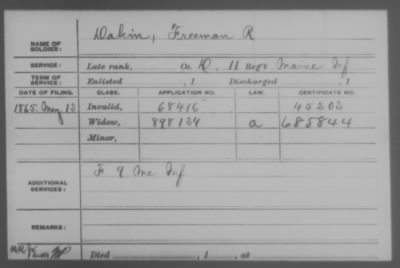 NAME OF SOLDIER: Dakin, Freeman R
SERVICE: Late rank, Co. D, 11 Reg't Maine Inf
TERM OF SERVICE: Enlisted , 1 Discharged , 1
DATE OF FILING. CLASS. APPLICATION NO. LAW. CERTIFICATE NO.
1865 May 12 Invalid, 68416 40203
Widow, 898139 a 685844
Minor,
ADDITIONAL SERVICES: F 9 Me Inf
REMARKS:
Died , 1 , at